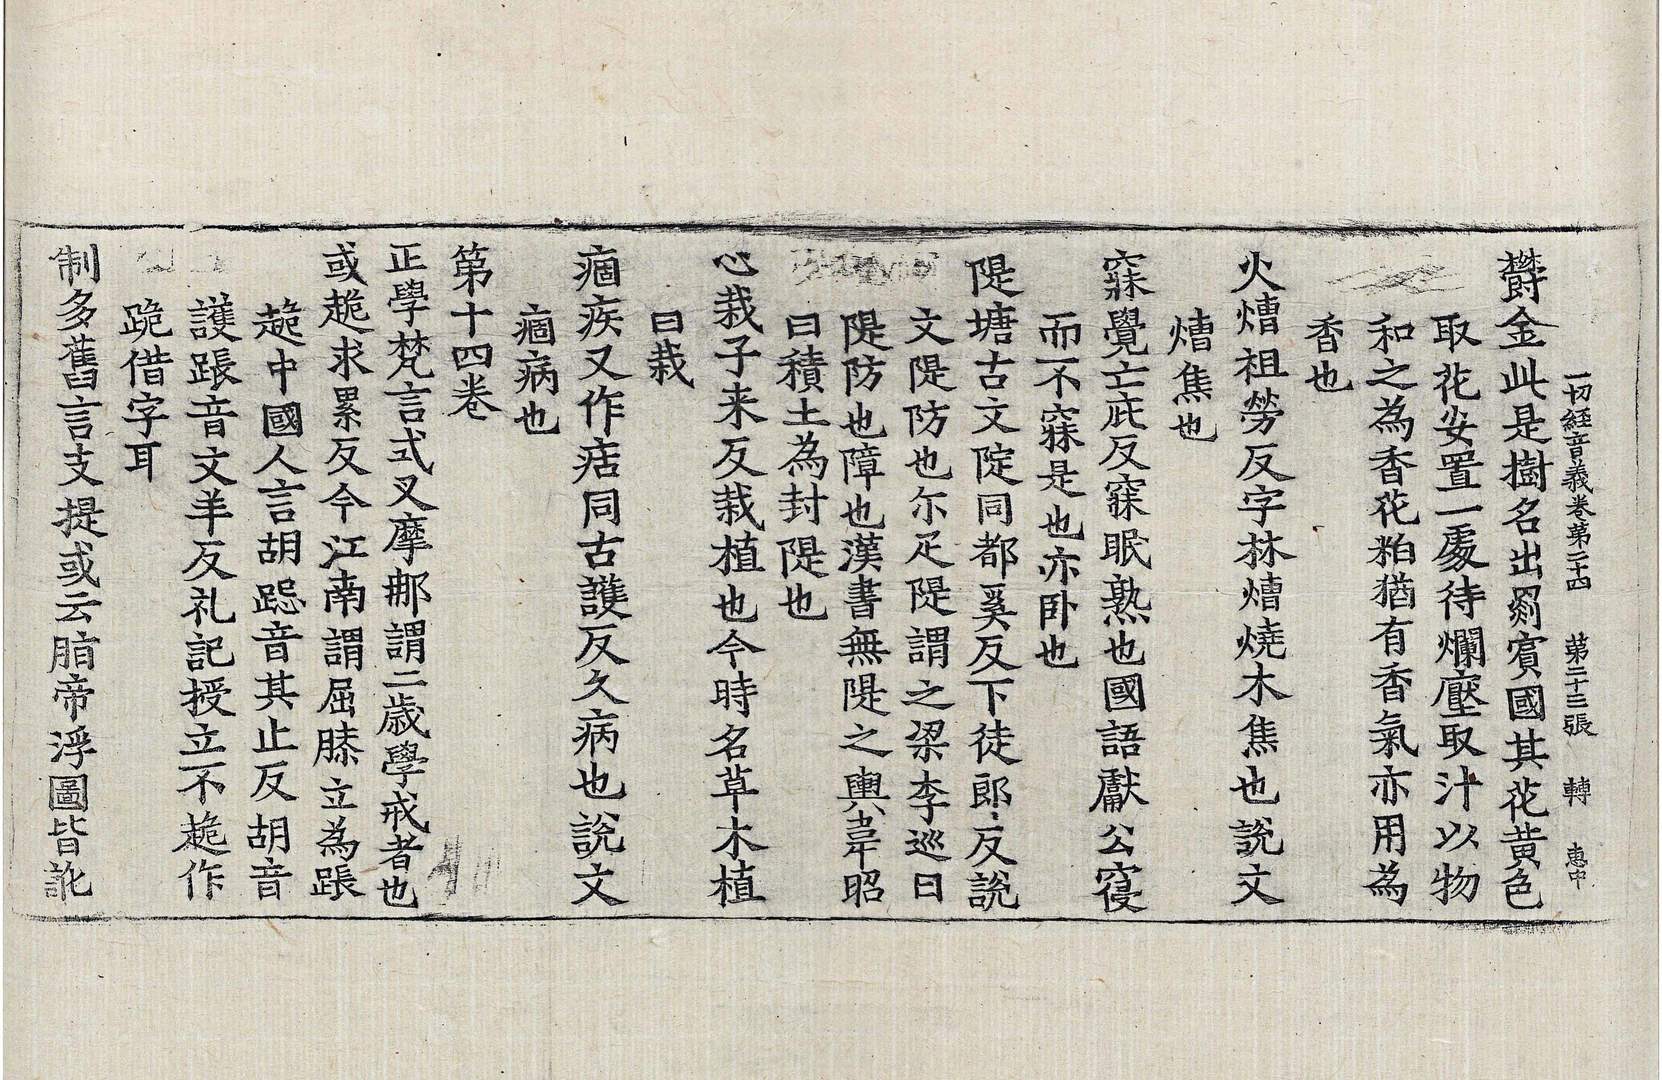 一切経音義卷第二十四 第二十三張 轉 惠中
欝金此是樹名出罽賔國其花黄色
取花安置一處待爛壓取汁以物
和之為香花粕猶有香氣亦用為
香也
火熸祖勞反字林熸燒木焦也說文
熸焦也
寐覺亡庇反寐眠熟也國語獻公寑
而不寐是也亦卧也
隄塘古文隄同都奚反下徒郎反說
文隄防也尓疋隄謂之梁李巡曰
隄防也障也漢書無隄之輿韋昭
曰積土為封隄也
心栽子来反栽植也今時名草木植
曰栽
痼疾又作㽽同古護反久病也說文
痼病也
第十四卷
正學梵言式叉摩那謂二歲學戒者也
或䠆求累反今江南謂屈膝立為䠆
䠆中國人言胡跽音其止反胡音
護䠆音文羊反礼記授立不䠆作
跪借字耳
制多舊言支提或云脂帝浮圖皆訛